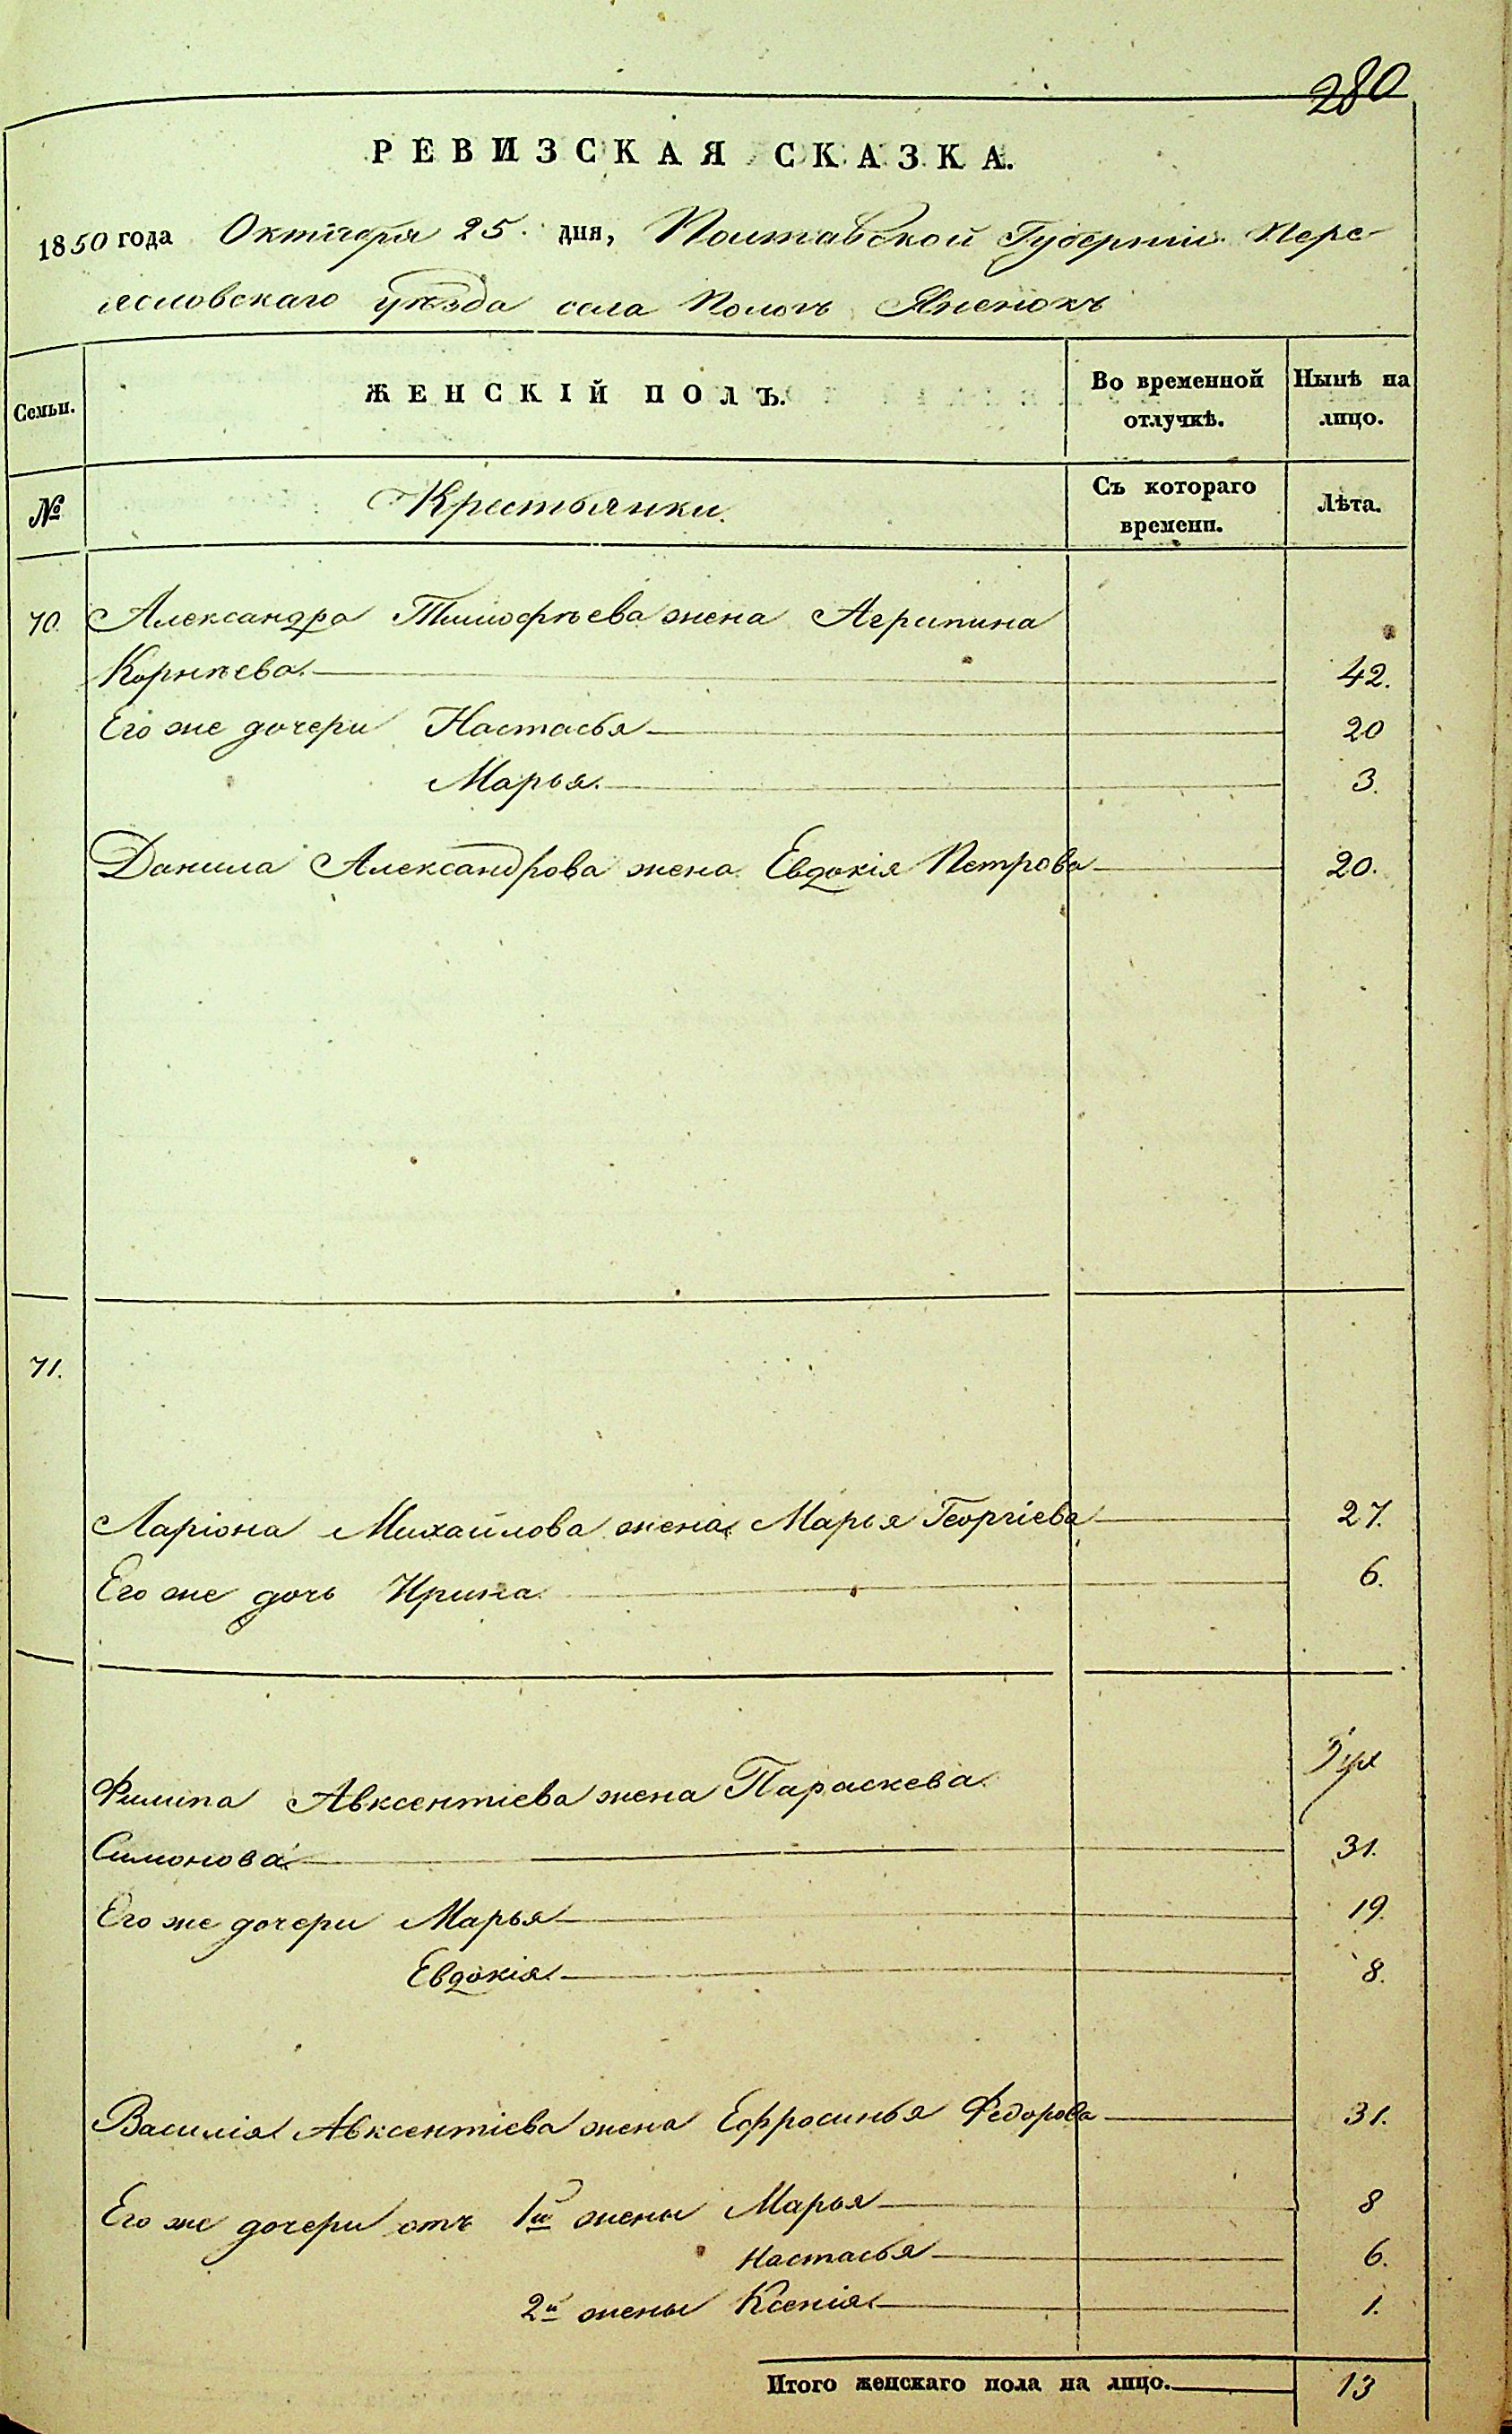 280
РЕВИЗСКАЯ СКАЗКА.
1850 года Октября 25. дня, Полтавской Губерніи Пере-
ясловскаго уѣзда села Пологъ Яненокъ
Семьи. ЖЕНСКІЙ ПОЛЪ. Во временной отлучкѣ. Нынѣ на лицо.
№ Крестьянки. Съ котораго времени. Лѣта.
70. Александра Тимофѣева жена Агрипина
Корнѣева. 42.
Его же дочери Настасья 20
Марья. 3.
Данила Александрова жена Евдокія Петрова 20.
71.
Ларіона Михайлова жена Марья Георгіева 27.
Его же дочь Ирина. 6.
Филипа Авксентіева жена Параскева
Симонова 31.
Его же дочери Марья 19.
Евдокія 8.
Василія Авксентіева жена Ефросинья Федорова 31.
Его же дочери отъ 1й жены Марья 8
Настасья 6.
2й жены Ксенія 1.
Итого женскаго пола на лицо. 13